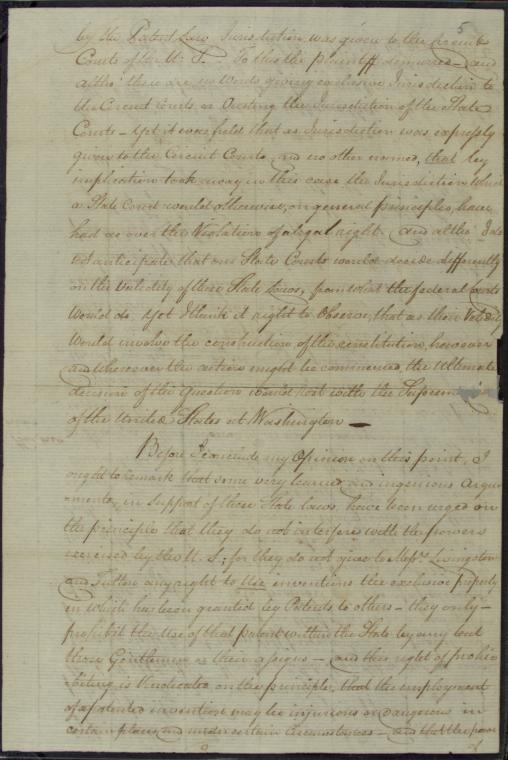 5
by the Patent Law Jurisdiction was given to the Circuit
Courts of the U. S. To this the plaintiff demurred — and
altho' there are no words giving exclusive Jurisdiction to
the Circuit Courts, or Ousting the Jurisdiction of the State
Courts — yet it was held that as Jurisdiction was expressly
given to the Circuit Courts, and no other named, that by
implication took away in this case the Jurisdiction which
a State Court would otherwise, on general principles, have
had as over the Violation of a legal right. And altho' I do
not anticipate that our State Courts would decide differently
on the Validity of these State Laws, from what the federal Courts
would do. Yet I think it right to Observe, that as their Validity
would involve the construction of the constitution, however
and wherever the action might be commenced, the Ultimate
decision of the Question would rest with the Supreme
of the United States at Washington —
Before I conclude my Opinion on this point, I
ought to remark that some very learned and ingenious Argu
=ments, in support of these State laws, have been urged on
the principle that they do not interfere with the powers
exercised by the U. S; for they do not give to Messrs. Livingston
and Fulton any right to use inventions the exclusive property
in which has been granted by Patents to others — they only —
prohibit the Use of that patent within the State by any but
those Gentlemen or their assigns — and this right of prohi
=biting is Vindicated on the principle, that the employment
of a patented invention may be injurious or dangerous in
certain places, and under certain Circumstances — and that the power
of